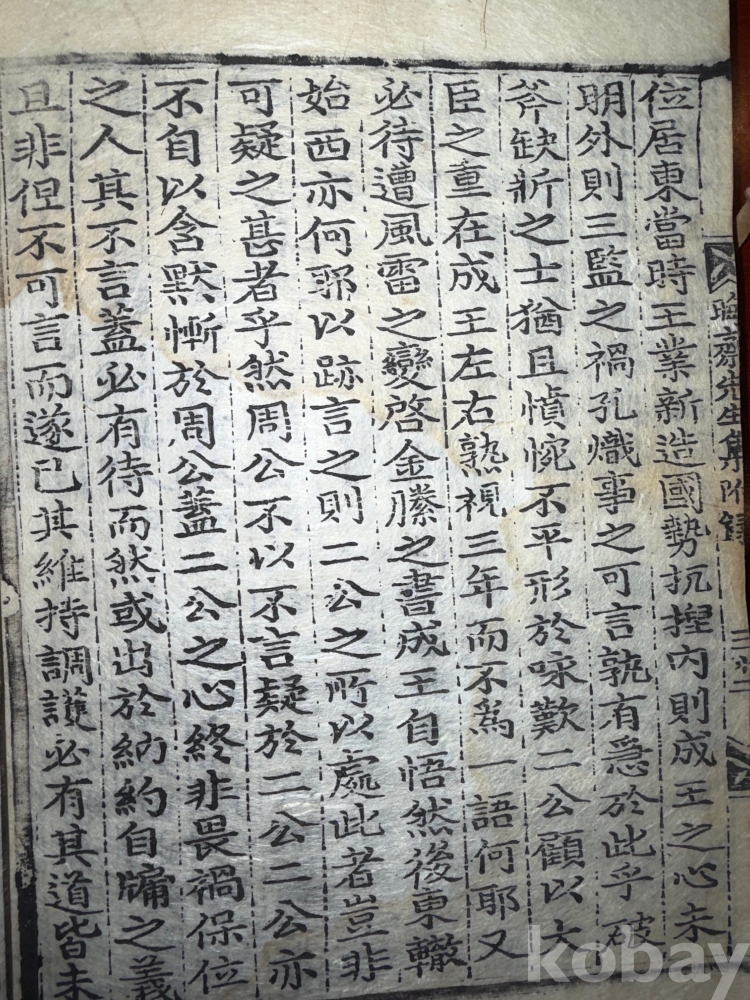 位居東當時王業新造國勢扤捏內則成王之心未
明外則三監之禍孔熾事之可言孰有急於此乎破
斧缺斨之士猶且憤惋不平形於咏歎二公顧以大
臣之重在成王左右熟視三年而不爲一語何耶又
必待遭風雷之變啓金縢之書成王自悟然後東轍
始西亦何耶以跡言之則二公之所以處此者豈非
可疑之甚者乎然周公不以不言疑於二公二公亦
不自以含默慚於周公蓋二公之心終非畏禍保位
之人其不言蓋必有待而然或出於納約自牖之義
且非但不可言而遂已其維持調護必有其道皆未
晦齋先生集附錄
kobay